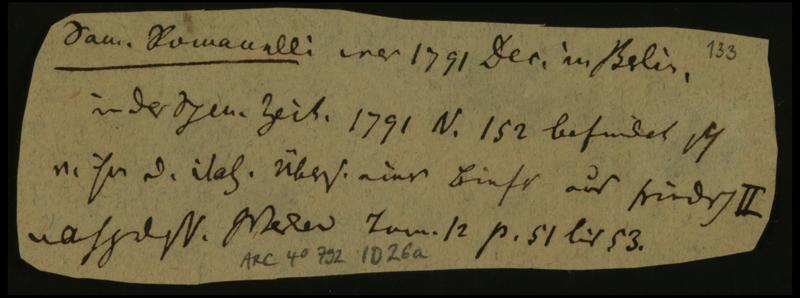 Sam. Romanelli war 1791 Dec. in Berlin, 133
in der Spen. Zeit. 1791 N. 152 befindet sich
v. ihm d. ital. Übers. eines Briefs aus Friedrich II
Werken Tom. 12 p. 51 bis 53.
ARC 4° 792 1D26a